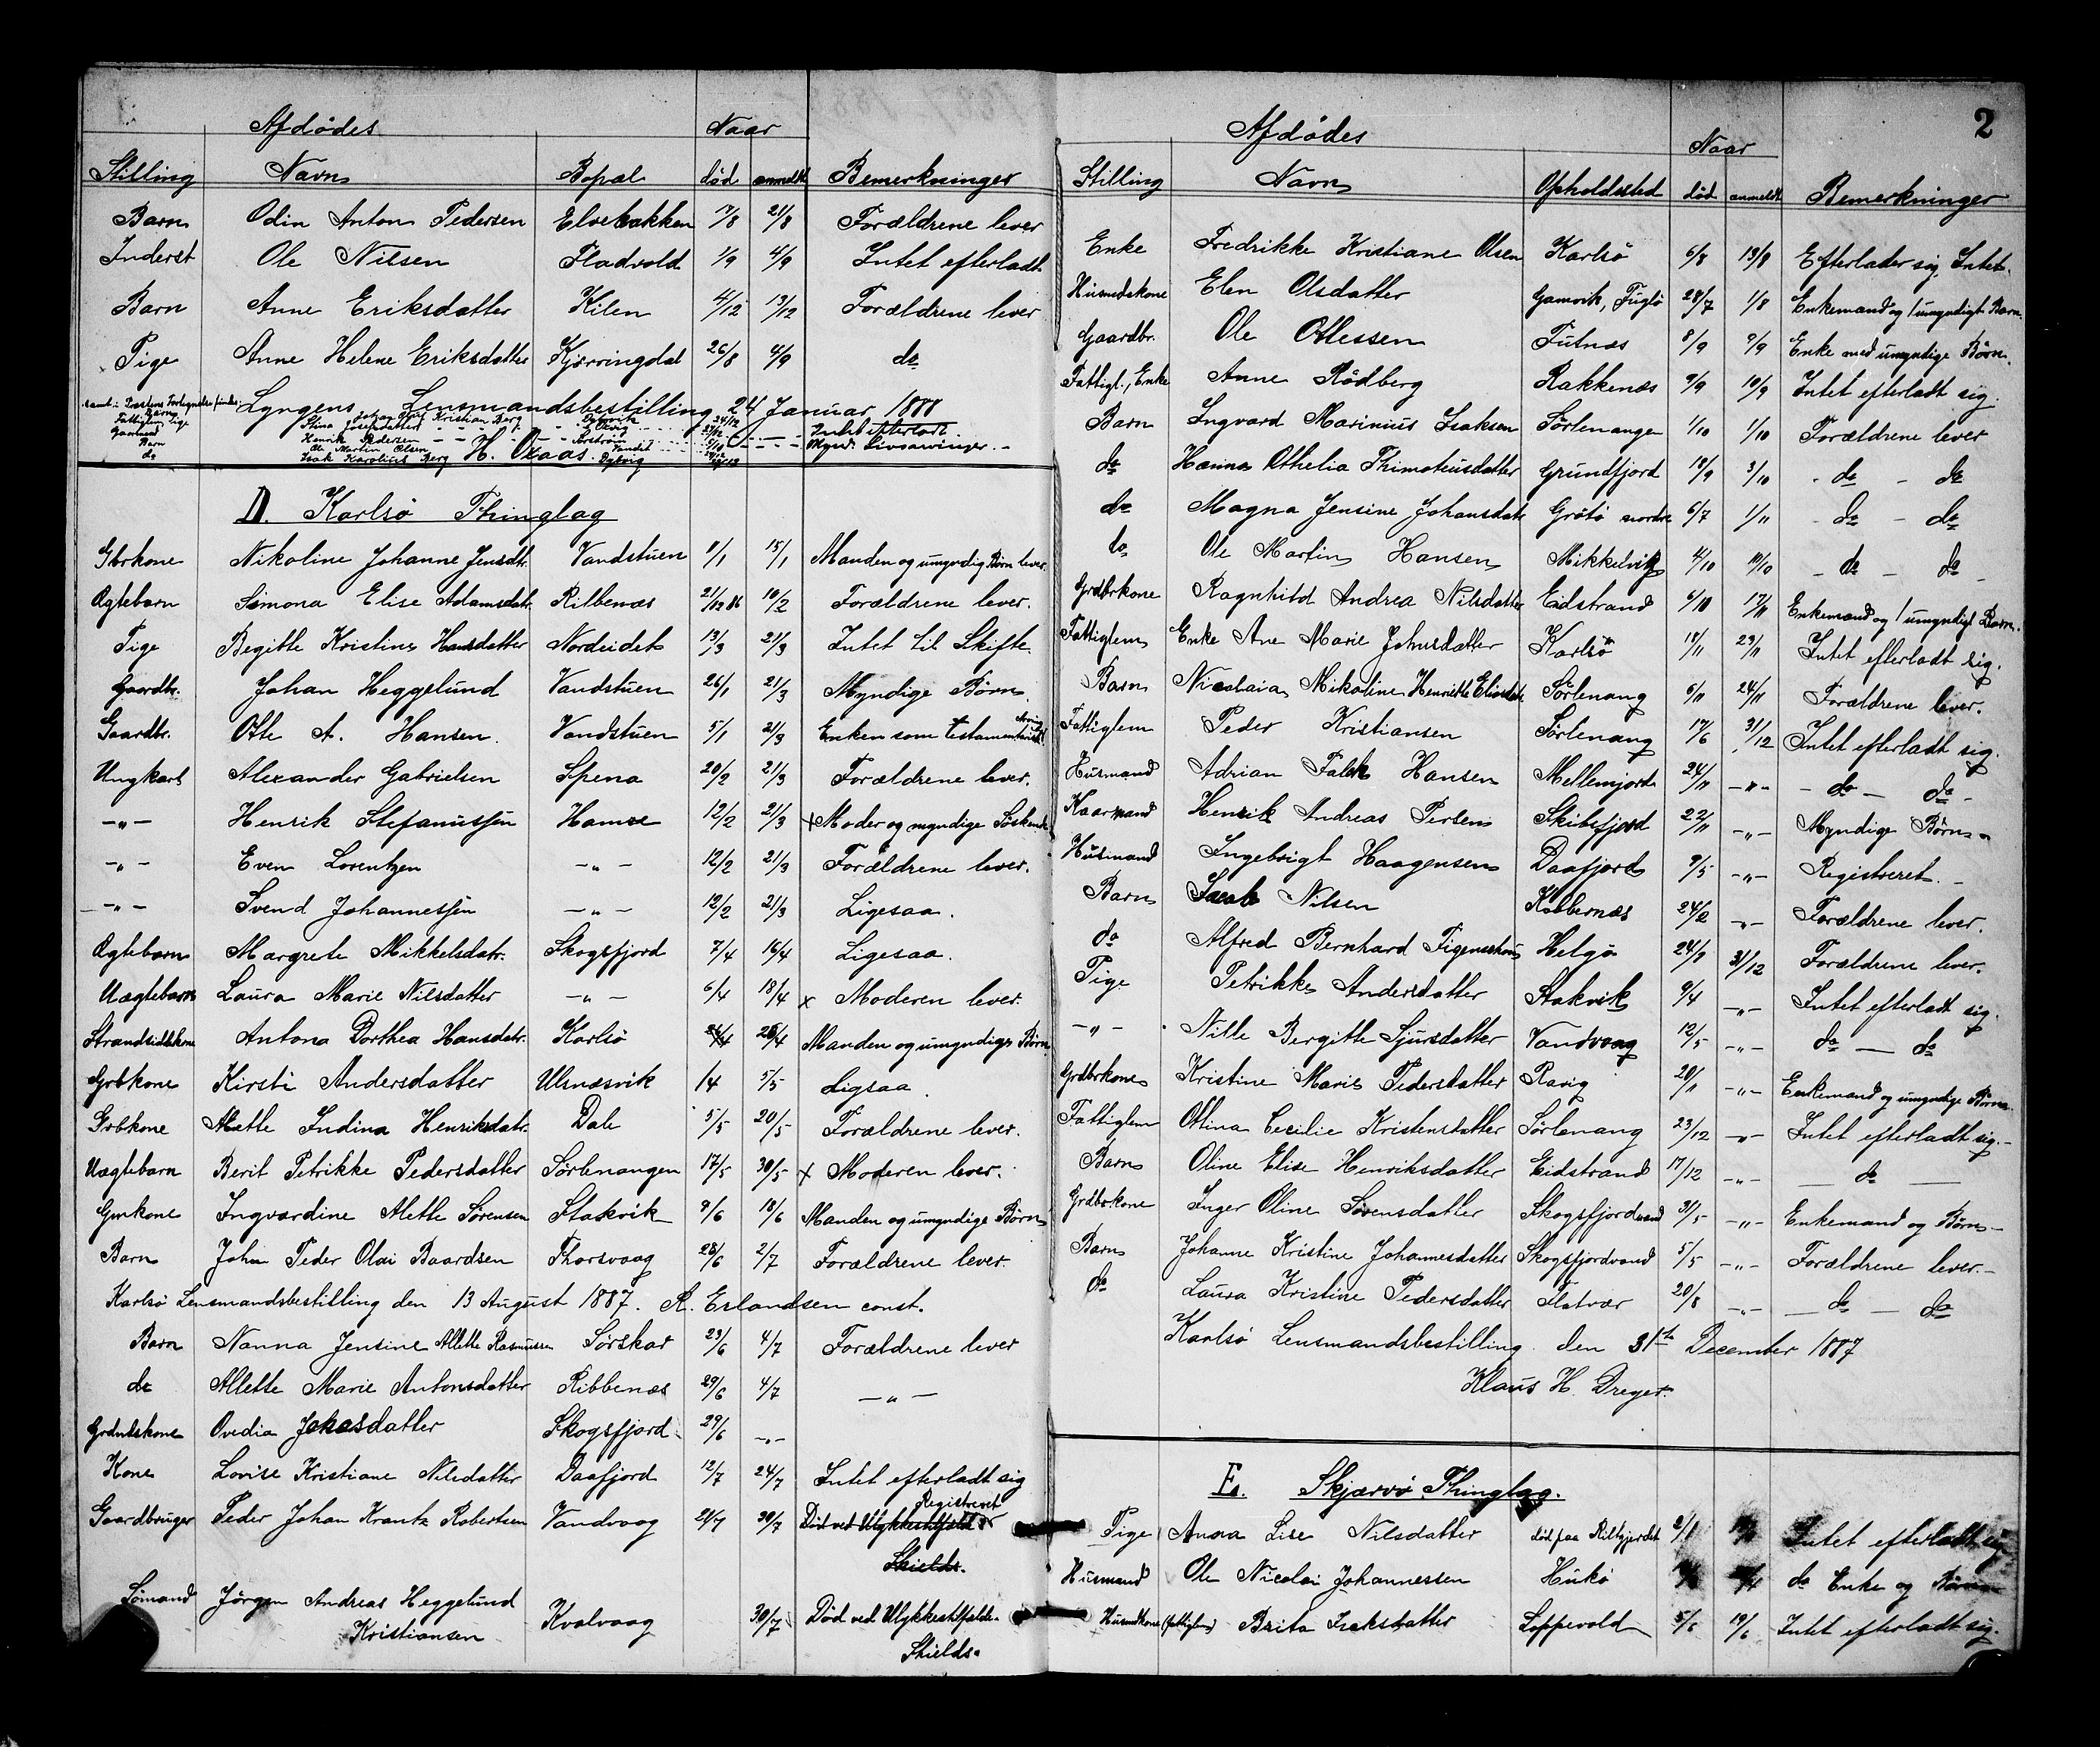 Afdödes Naar
Stilling Navn Bopæl död anmeldt Bemerkninger
Barn Odin Anton Pedersen Elvebakken 17/8 21/8 Forældrene lever
Inderst Ole Nilsen Fladvold 1/9 4/9 Intet efterladt
Barn Anne Eriksdatter Kilen 4/12 13/12 Forældrene lever
Pige Anne Helene Eriksdatter Kjerringdal 26/8 4/9 do
Lyngens Lensmandsbestilling 24 Januar 1888
H. Oxaas.
D. Karlsö Thinglag
Gbrkone Nikoline Johanne Jensdtr. Vandstuen 1/1 15/1 Manden og umyndig Börn lever.
Ægtebarn Simona Elise Adamsdatr. Ribbenæs 21/12 86 10/2 Forældrene lever.
Pige Begitte Kristine Hansdatter Nordeidet 13/3 21/3 Intet til Skifte.
Gaardbr. Johan Heggelund Vandstuen 26/1 21/3 Myndige Börn
Gaardbr. Otte A. Hansen. Vandstuen 5/1 21/3 Enken som testamentarisk Arving
Ungkarl Alexander Gabrielsen Spena 20/2 21/3 Forældrene lever.
-"- Henrik Stefanussen Hamre 12/2 21/3 x Moder og myndige Söskende
-"- Even Lorentzen -"- 12/2 21/3 Forældrene lever.
-"- Svend Johannessen -"- 12/2 21/3 Ligesaa.
Ægtebarn Margrete Mikkelsdatr. Skogsfjord 7/4 16/4 Ligesaa.
Uægtebarn Laura Marie Nilsdatter -"- 6/4 18/4 x Moderen lever.
Strandsidderkone Antona Dorthea Hansdatr. Karlsö 24/4 28/4 Manden og umyndige Börn
Grbkone Kirsti Andersdatter Ulsnæsvik 14 5/5 Ligsaa.
Grbkone Mette Indina Henriksdatr. Dale 5/5 20/5 Forældrene lever.
Uægtebarn Berit Petrikke Pedersdatter Sörlenangen 17/5 30/5 x Moderen lever.
Gmkone Ingvardine Alette Sörensen Stakvik 9/6 18/6 Manden og umyndige Börn
Barn John Peder Olai Baardsen Thorsvaag 28/6 2/7 Forældrene lever.
Karlsö Lensmandsbestilling den 13 August 1887. A. Erlandsen const.
Barn Nanna Jensine Alette Rasmussen Sörskar 23/6 4/7 Forældrene lever
do Alette Marie Antonsdatter Ribbenæs 29/6 4/7 -"-
Ovedia Jakobsdatter Skogsfjord 29/6 -"-
Kone Lovise Kristiane Nilsdatter Daafjord 12/7 24/7 Intet efterladt sig
Registreret
Gaardbruger Peder Johan Krantz Robertsen Vandvaag 21/7 30/7 Död ved Ulykkestilfælde
Skields.
Sömand Jörgen Andreas Heggelund
Kristiansen Kvalvaag 30/7 Död ved Ulykkestilfælde.
Skields.
2
Afdödes Naar
Stilling Navn Opholdssted död anmeldt Bemerkninger
Enke Fredrikke Kristiane Olsen Karlsö 6/8 13/8 Efterlader sig Intet.
Husmdskone Elen Olsdatter Gamvik, Fuglö 28/7 1/8 Enkemand og 1 umyndigt Barn.
Gaardbr. Ole Ottessen Futnæs 8/9 9/9 Enke med umyndige Börn.
Fattigl., Enke Anne Rödberg Rakkenæs 9/9 10/9 Intet efterladt sig.
Barn Ingvard Marinius Isaksen Sörlenangen 1/10 1/10 Forældrene lever
do Hanna Othelia Thimoteusdatter Grundfjord 18/9 3/10 - do - do
do Magna Jensine Johansdatr Grötö nordre 6/7 1/11 - do - do
do Ole Martin Hansen Mikkelvik 4/10 10/10 - do - do -
Grdbrkone Ragnhild Andrea Nilsdatter Eidstrand 6/10 17/11 Enkemand og 1 umyndigt Barn.
Fattiglem Enke Ane Marie Johnsdatter Karlsö 18/11 23/11 Intet efterladt sig.
Barn Nicolaia Mikoline Henriette Eliasdatr. Sörlenang 6/11 24/11 Forældrene lever.
Fattiglem Peder Kristiansen Sörlenang 17/6 31/12 Intet efterladt sig.
Husmand Adrian Falck Hansen Mellemjord 24/11 -"- - do - do -
Kaarmand Henrik Andreas Persen Skibsfjord 22/11 -"- Myndige Börn -
Husmand Ingebrigt Haagensen Daafjord 9/5 -"- Registreret. -
Barn Jacob Nilsen Kobbernæs 24/2 -"- Forældrene lever.
do Alfred Bernhard Figenschou Helgö 24/9 31/12 Forældrene lever.
Pige Petrikke Andersdatter Stakvik 9/4 -"- Intet efterladt sig.
-"- Nille Bergitte Sjursdatter Vandvaag 12/5 -"- do - do
Grdbrkone Kristine Marie Pedersdatter Ravig 20/11 -"- Enkemand og umyndige Börn.
Fattiglem Ottina Cecilie Kristensdatter Sörlenang 23/12 -"- Intet efterladt sig. -
Barn Oline Elise Henriksdatter Eidstrand 17/12 -"- - do -
Grdbrkone Inger Oline Sörensdatter Skogsfjordvand 31/5 -"- Enkemand og Börn -
Barn Johanne Kristine Johannesdatter Skogsfjordvand 5/5 -"- Forældrene lever. -
do Laura Kristine Pedersdatter Flatvær 20/8 -"- - do - do
Karlsö Lensmandsbestilling den 31te December 1887
Klaus H. Dreyer.
E. Skjærvö Thinglag.
Pige Anna Lise Nilsdatter död paa Intet efterladt sig
Husmand Ole Nicolai Johannessen Hukö do Enke og Börn
Husmdkone (fattiglem) Brita Isaksdatter Loppevold 5/6 19/6 Intet efterladt sig.